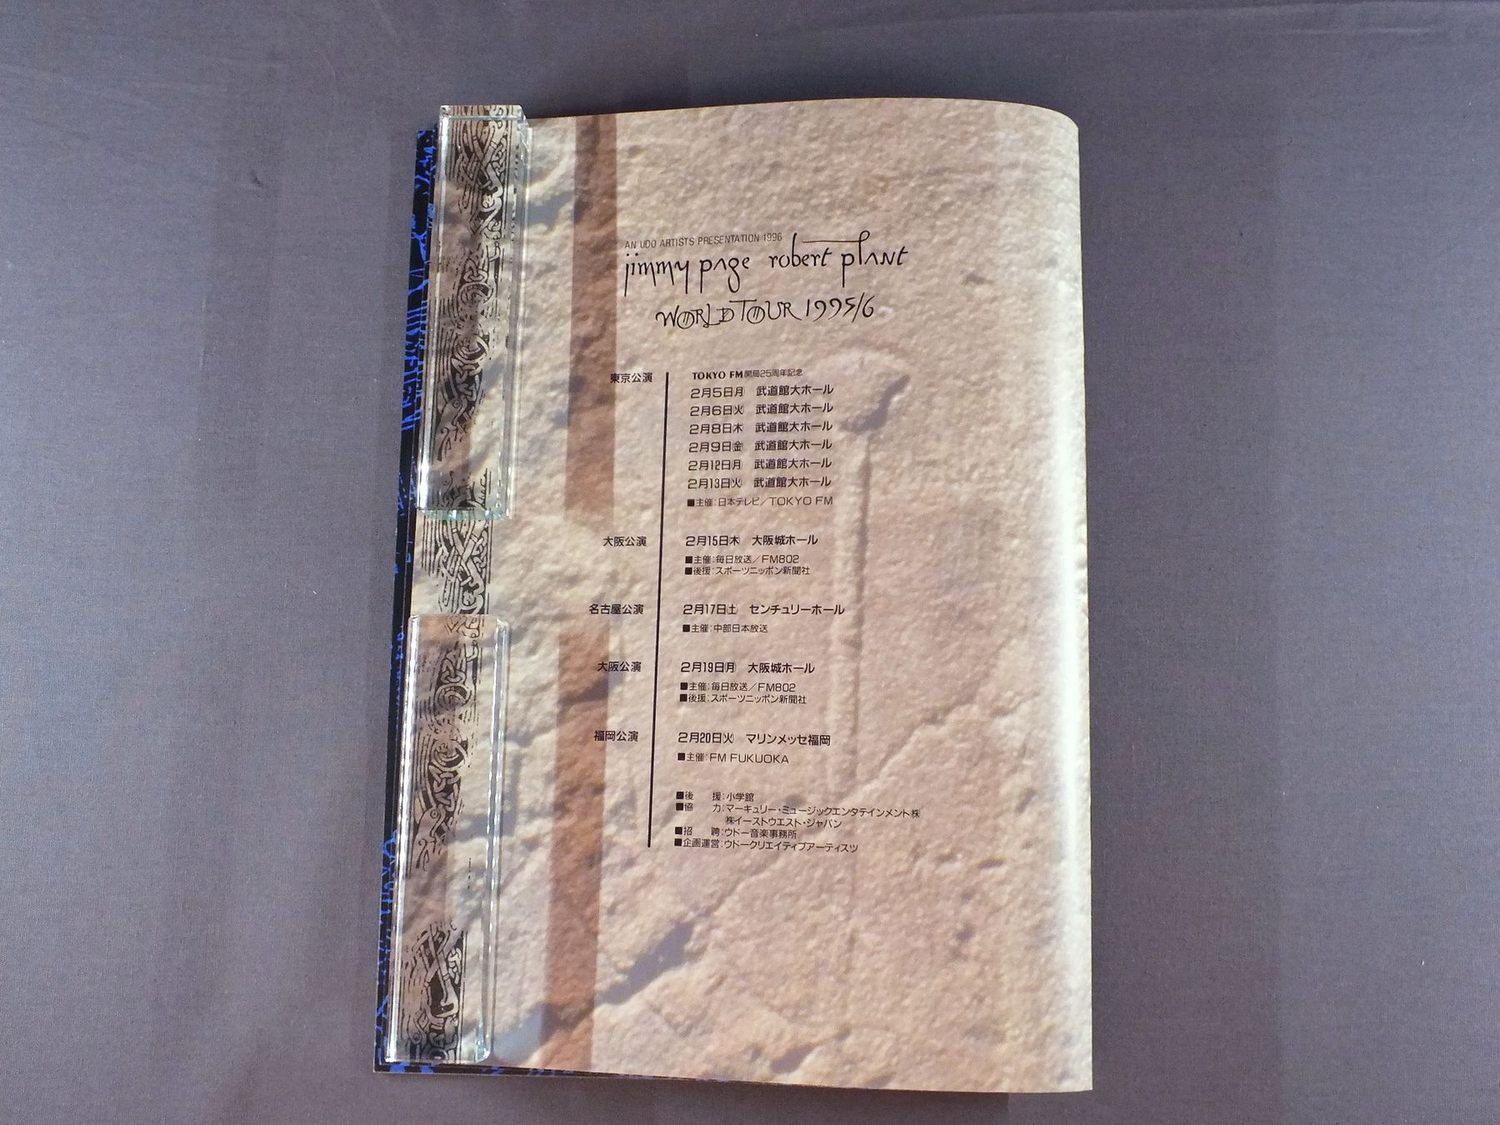 AN UDO ARTISTS PRESENTATION 1996
jimmy page robert plant
WORLD TOUR 1995/6
東京公演
TOKYO FM開局25周年記念
2月5日月 武道館大ホール
2月6日火 武道館大ホール
2月8日木 武道館大ホール
2月9日金 武道館大ホール
2月12日月 武道館大ホール
2月13日火 武道館大ホール
■主催:日本テレビ/TOKYO FM
大阪公演 2月15日木 大阪城ホール
■主催:毎日放送/FM802
■後援:スポーツニッポン新聞社
名古屋公演 2月17日土 センチュリーホール
■主催:中部日本放送
大阪公演 2月19日月 大阪城ホール
■主催:毎日放送/FM802
■後援:スポーツニッポン新聞社
福岡公演 2月20日火 マリンメッセ福岡
■主催:FM FUKUOKA
■後 援:小学館
■協 力:マーキュリー・ミュージックエンタテインメント㈱
㈱イーストウエスト・ジャパン
■招 聘:ウドー音楽事務所
■企画運営:ウドークリエイティブアーティスツ